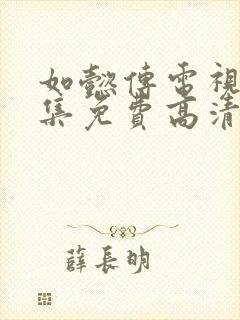 如懿傳電視
集免費高清
薛長明